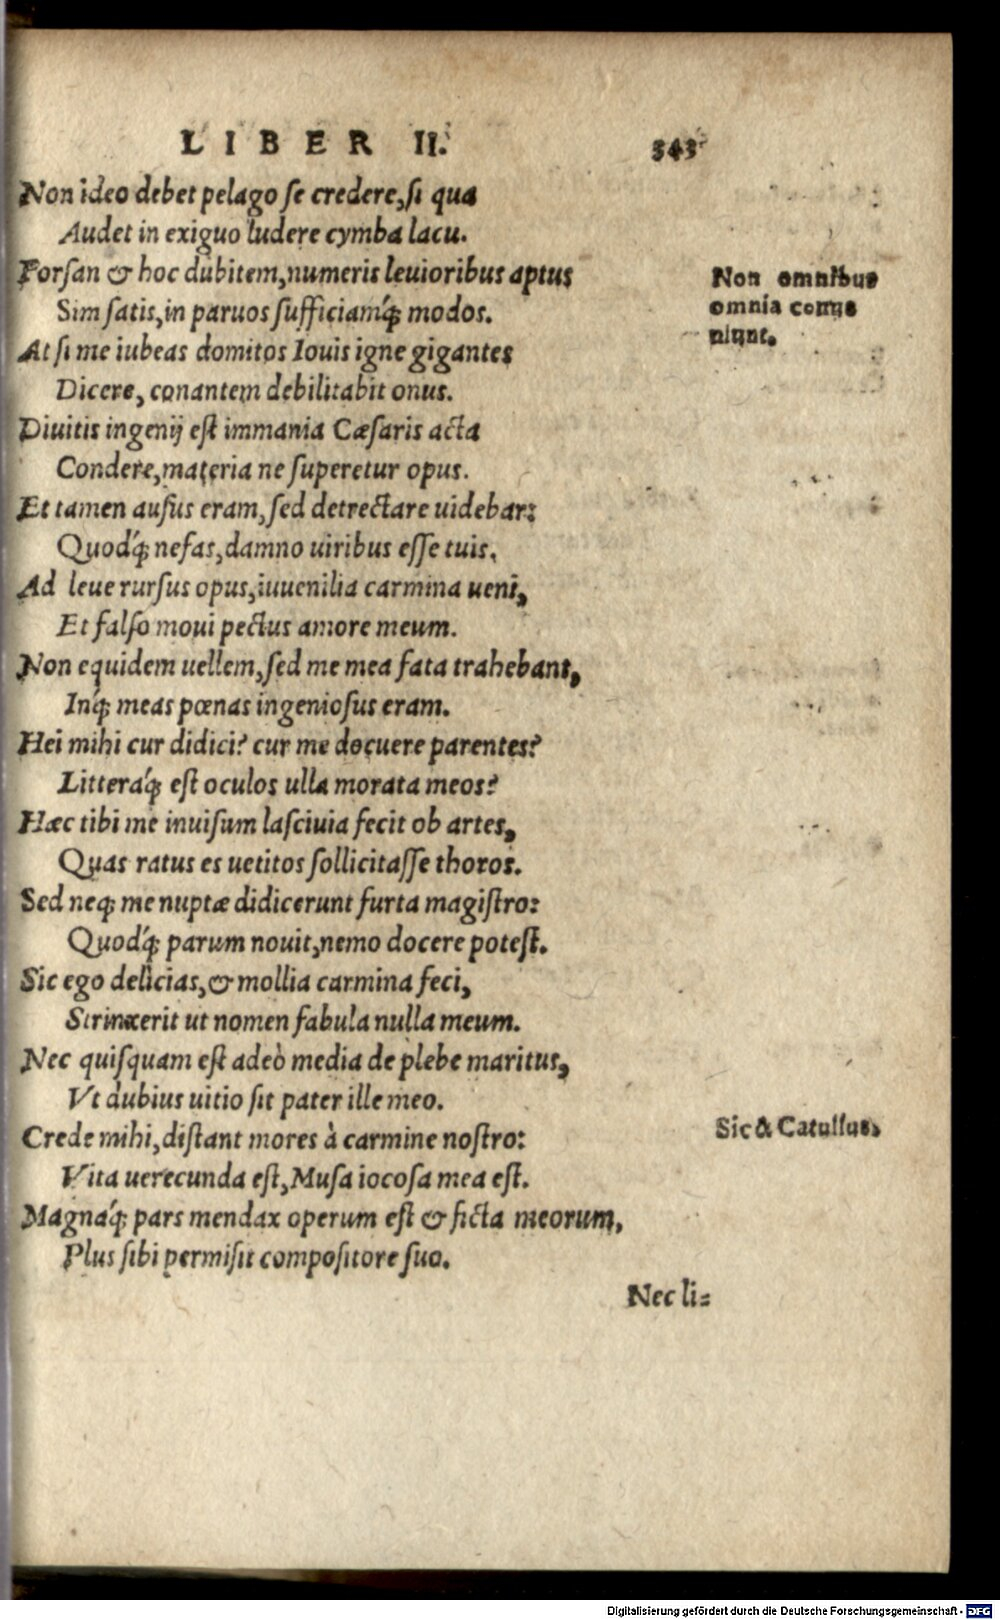 LIBER II. 343
Non ideo debet pelago se credere, si qua
Audet in exiguo ludere cymba lacu.
Forsan & hoc dubitem, numeris leuioribus aptus
Sim satis, in paruos sufficiamq́; modos.
At si me iubeas domitos Iouis igne gigantes
Dicere, conantem debilitabit onus.
Diuitis ingenij est immania Cæsaris acta
Condere, materia ne superetur opus.
Et tamen ausus eram, sed detrectare uidebar:
Quodq́; nefas, damno uiribus esse tuis.
Ad leue rursus opus, iuuenilia carmina ueni,
Et falso moui pectus amore meum.
Non equidem uellem, sed me mea fata trahebant,
Inq́; meas pœnas ingeniosus eram.
Hei mihi cur didici? cur me docuere parentes?
Litteraq́; est oculos ulla morata meos?
Hæc tibi me inuisum lasciuia fecit ob artes,
Quas ratus es uetitos sollicitasse thoros.
Sed neq; me nuptæ didicerunt furta magistro:
Quodq́; parum nouit, nemo docere potest.
Sic ego delicias, & mollia carmina feci,
Strinxerit ut nomen fabula nulla meum.
Nec quisquam est adeò media de plebe maritus,
Vt dubius uitio sit pater ille meo.
Crede mihi, distant mores à carmine nostro:
Vita uerecunda est, Musa iocosa mea est.
Magnaq́; pars mendax operum est & ficta meorum,
Plus sibi permisit compositore suo.
Nec li=
Non omnibus
omnia conue
niunt.
Sic & Catullus.
Digitalisierung gefördert durch die Deutsche Forschungsgemeinschaft - DFG